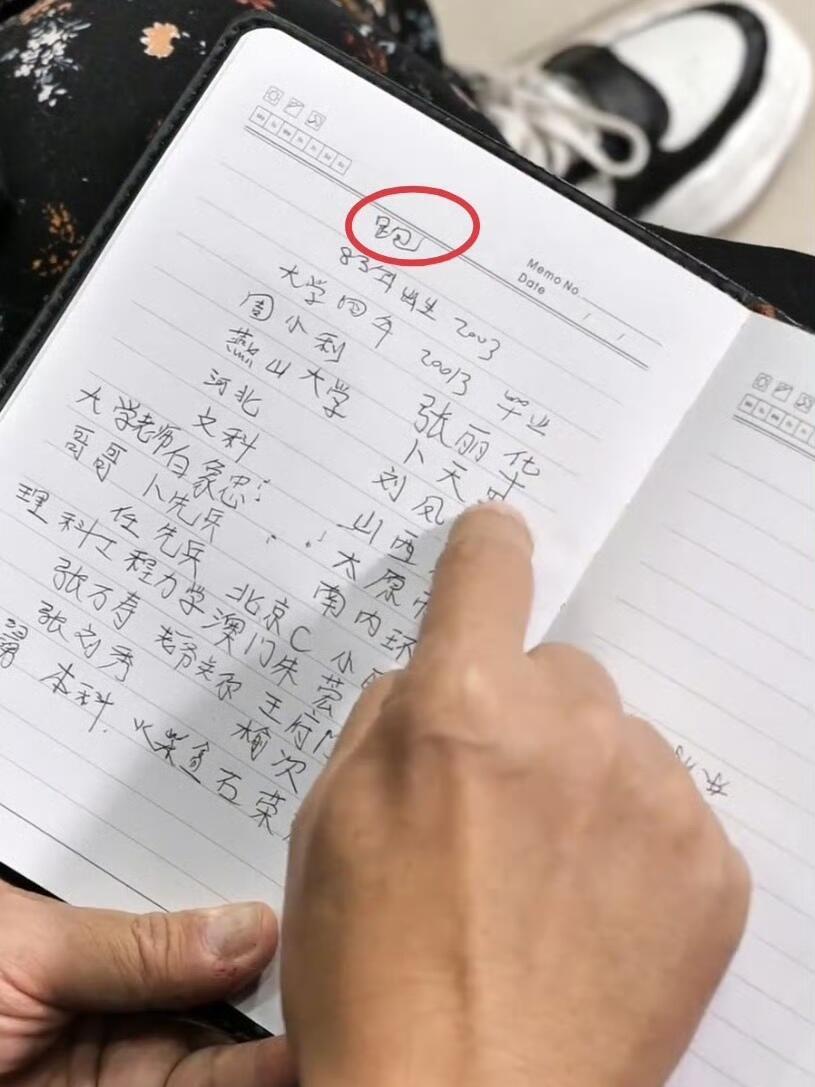 跑
Memo No.
Date
83年出生 2003
大学四年 20013 毕业
周小利 张丽华
燕山大学 卜天
河北 刘凤
文科 山西
大学老师白象忠: 太原市
哥哥 卜先兵 南内环
任先兵 北京C 小
理科工程力学澳门朱蓉
张万寿 王府
张刘秀 榆次
本科. 火柴 石荣